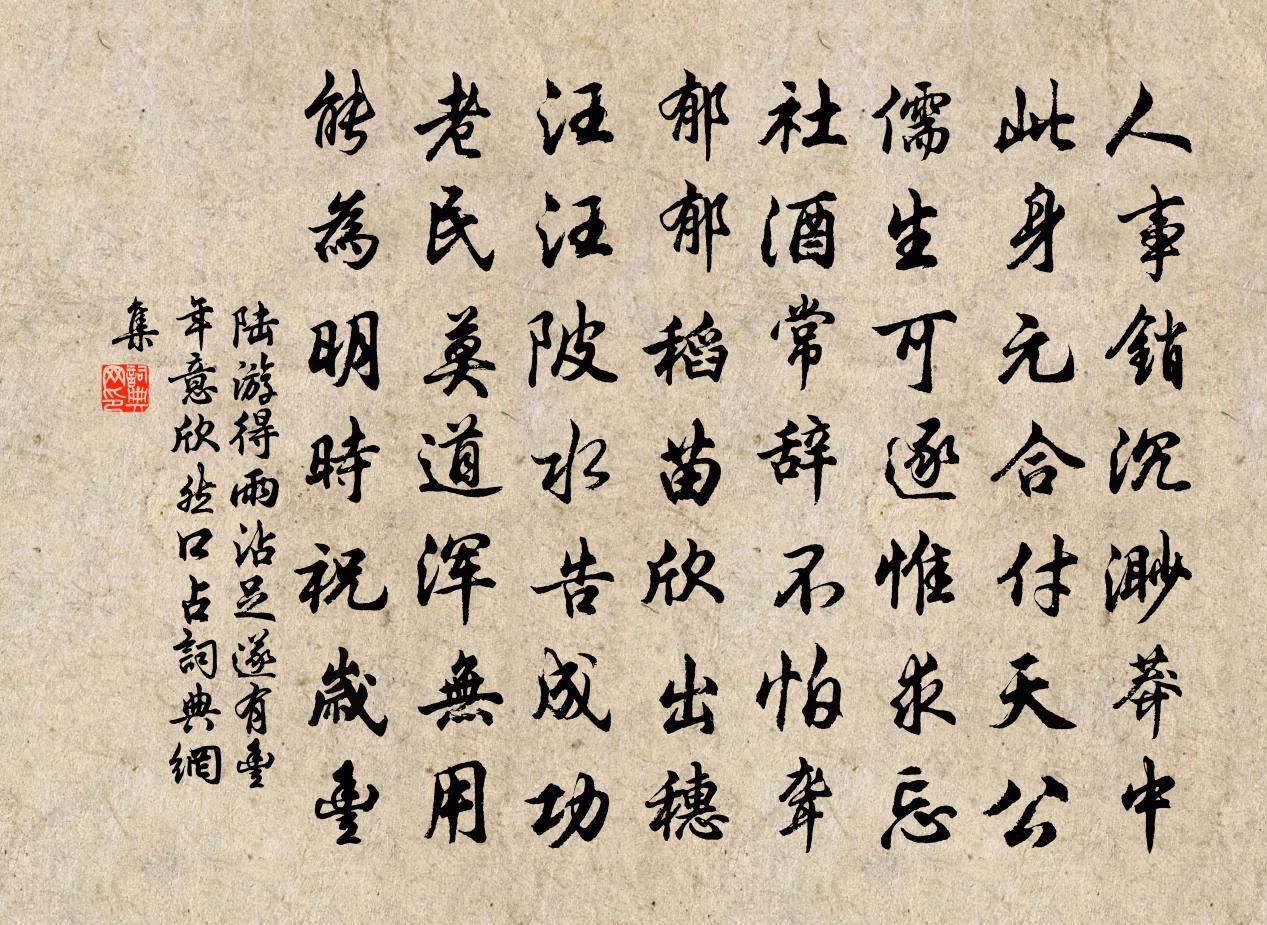 人事銷沉渺莽中
此身元合付天公
儒生可逐惟求忘
社酒常辞不怕聋
郁郁稻苗欣出穗
汪汪陂水告成功
老民莫道浑無用
能為明時祝歲豐
陆游得雨沾足遂有豐
年意欣然口占詞典網
集
詞典网印